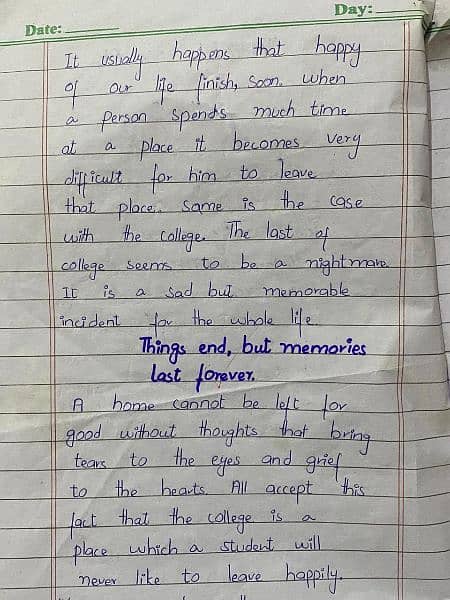 Day:
Date:
It usually happens that happy
of our life finish, soon. when
a person spends much time
at a place it becomes very
difficult for him to leave
that place. Same is the case
with the college. The last of
college seems to be a nightmare.
It is a sad but memorable
incident for the whole life.
Things end, but memories
last forever.
A home cannot be left for
good without thoughts that bring
tears to the eyes and grief
to the hearts. All accept this
fact that the college is a
place which a student will
never like to leave happily.